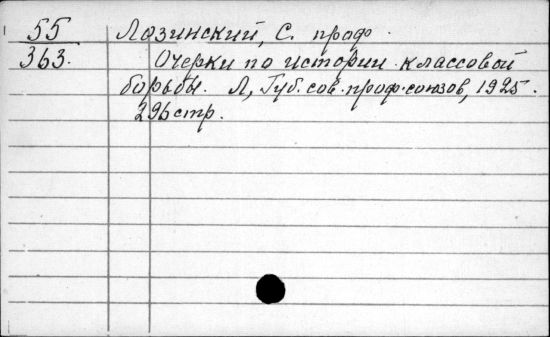 55 Лозинский, С. проф.
363. Очерки по истории классовой
борьбы. Л, Губ. сов. проф. союзов, 1925.
296 стр.